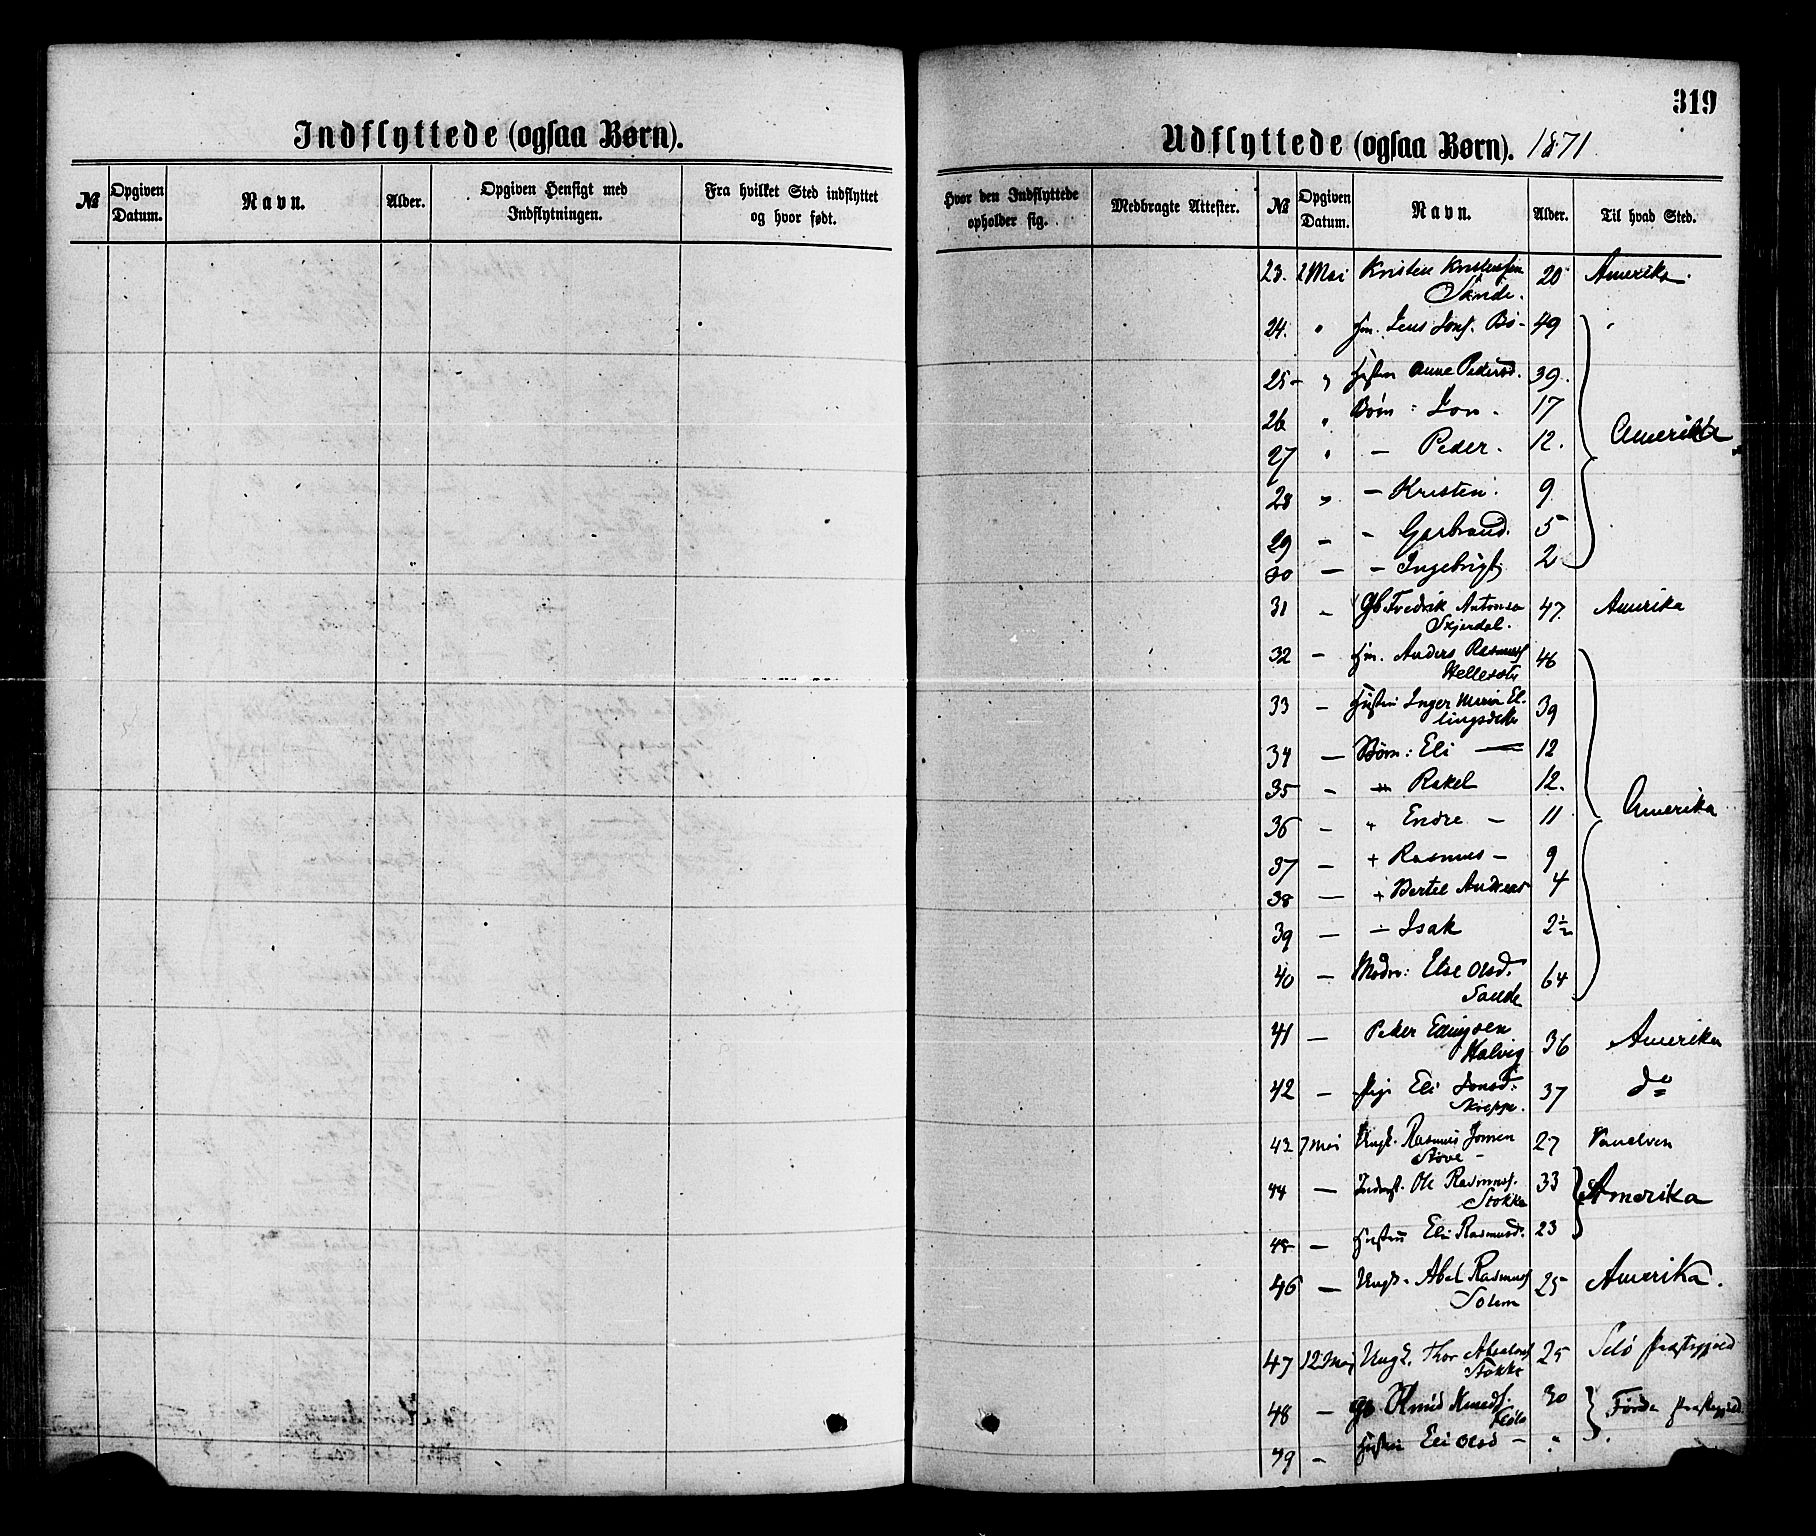 319
Indflyttede (ogsaa Børn).
№ Opgiven Datum. Navn. Alder. Opgiven Hensigt med Indflytningen. Fra hvilket Sted indflyttet og hvor født.
Udflyttede (ogsaa Børn). 1871
Hvor den Indflyttede opholder sig. Medbragte Attester. № Opgiven Datum. Navn. Alder. Til hvad Sted.
23. 2 Mai Kristen Kristensen 20 Amerika.
Sande.
24. " Hm. Jens Jons. Bø- 49 "
25- " Hustru Anne Pedersd. 39.
26 " Børn: Jon. 17
Amerika
27 " - Peder. 12.
28 " - Kristen. 9
29 - - Garbrand. 5
30 - - Ingebrigt 2
31 - Gb Fredrik Antons 47. Amerika
Skjerdal.
32 - Hm. Anders Rasmuss 46
Hellesete
33 - Hustru Inger Marie El- 39
lingsdtr
34 - Børn: Eli - 12
35 - " Rakel 12.
Amerika
36 - " Endre - 11
37 - + Rasmus - 9
38 - + Bertel Andreas 4
39 - - Isak 2½
40 - Modr: Else Olsd. 64
Sande
41 - Peder 36 Amerika
42 - Pige Eli Jonsd. 37 do
43 7 Mai Ungk. Rasmus 27 Vanelven
44 - Inderst. Ole Rasmuss. 33 Amerika
Stokke
45 - Hustru Eli Rasmusd. 23
46 - Ungk. Abel Rasmuss 25 Amerika.
Solem
47 12 Mai Ungk. Thor 25 Selø Præstegjeld
Stokke
48 - Gb Knud Knuds. 30 Førde Præstegjeld
49 - Hustru Eli Olsd - " "